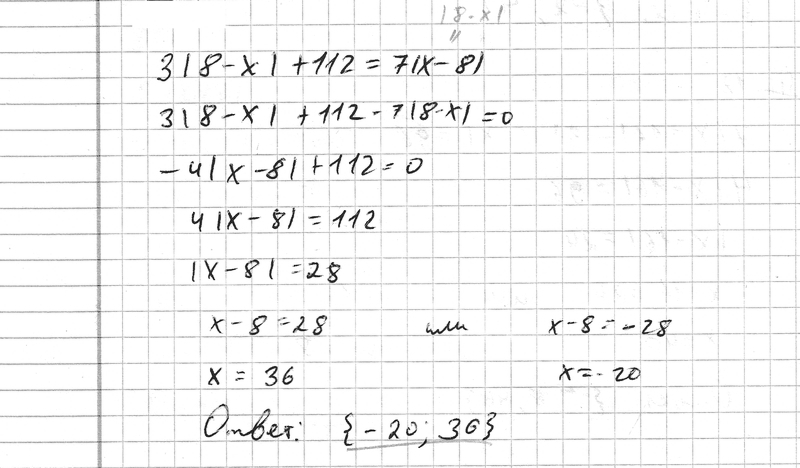 |8-x|
"
3|8-x|+112=7|x-8|
3|8-x|+112-7|8-x|=0
-4|x-8|+112=0
4|x-8|=112
|x-8|=28
x-8=28 или x-8=-28
x=36 x=-20
Ответ: {-20; 36}